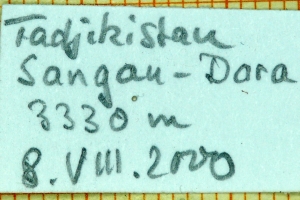 Tadjikistan
Sangau-Dara
3330 m
8.VIII.2000